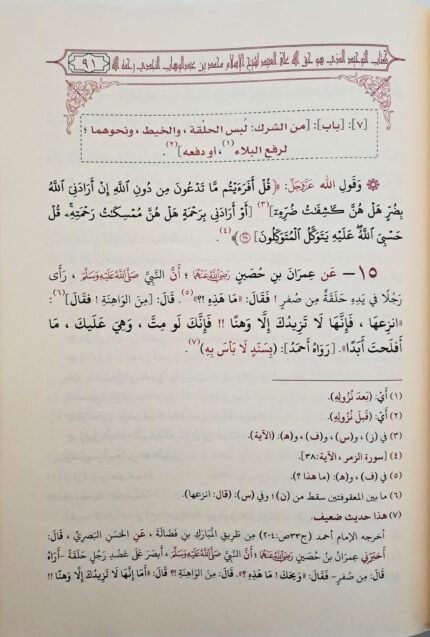 كتاب التوحيد الذي هو حق الله على العبيد لشيخ الإسلام محمد بن عبدالوهاب النجدي رحمه الله
٩١
[٧]: [باب]: [من الشرك: لُبس الحلْقة، والخيط، ونحوهما؛
لرفع البلاء(١)، أو دفعه](٢).
وَقَولِ اللهِ عَزَّوَجَلَّ: ﴿قُلْ أَفَرَءَيْتُم مَّا تَدْعُونَ مِن دُونِ ٱللَّهِ إِنْ أَرَادَنِىَ ٱللَّهُ
بِضُرٍّ هَلْ هُنَّ كَٰشِفَٰتُ ضُرِّهِۦٓ](٣) [أَوْ أَرَادَنِى بِرَحْمَةٍ هَلْ هُنَّ مُمْسِكَٰتُ رَحْمَتِهِۦ قُلْ
حَسْبِىَ ٱللَّهُ عَلَيْهِ يَتَوَكَّلُ ٱلْمُتَوَكِّلُونَ] ٣٨﴾(٤).
١٥ – عَن عِمرَانَ بنِ حُصَينٍ رَضِيَ اللَّهُ عَنْهُمَا؛ أَنَّ النَّبِيَّ صَلَّى اللَّهُ عَلَيْهِ وَسَلَّمَ، رَأَى
رَجُلًا فِي يَدِهِ حَلَقَةٌ مِن صُفرٍ! فَقَالَ: «مَا هَذِهِ !؟»(٥). قَالَ: [مِنَ الوَاهِنَةِ! فَقَالَ](٦):
«انزِعهَا، فَإِنَّهَا لَا تَزِيدُكَ إِلَّا وَهنًا !! فَإِنَّكَ لَو مِتَّ، وَهِيَ عَلَيكَ، مَا
أَفلَحتَ أَبَدًا». [رَوَاهُ أَحمَدُ]: (بِسَنَدٍ لَا بَأسَ بِهِ)(٧).
(١) أَيْ: (بَعدَ نُزُولِهِ).
(٢) أَيْ: (قَبلَ نُزُولِهِ).
(٣) في (ز)، و(س)، و(ف)، و(هـ): (الآية).
(٤) [سورة الزمر، الآية:٣٨].
(٥) في (ف)، و(هـ): (ما هذا ؟).
(٦) ما بين المعقوفتين سقط من (ن)؛ وفي (س): (قال: انزعها).
(٧) هذا حديث ضعيف.
أخرجه الإمام أحمد (ج٣٣ص:٢٠٤) مِن طَرِيقِ المُبَارَكِ بنِ فَضَالَةَ، عَنِ الحَسَنِ البَصرِيِّ، قَالَ:
أَخبَرَنِي عِمرَانُ بنُ حُصَينٍ رَضِيَ اللَّهُ عَنْهُمَا؛ أَنَّ النَّبِيَّ صَلَّى اللَّهُ عَلَيْهِ وَسَلَّمَ، أَبصَرَ عَلَى عَضُدِ رَجُلٍ حَلقَةً -أُرَاهُ
قَالَ: مِن صُفرٍ- فَقَالَ: «وَيحَكَ! مَا هَذِهِ؟». قَالَ: مِنَ الوَاهِنَةِ !؟ قَالَ: «أَمَا إِنَّهَا لَا تَزِيدُكَ إِلَّا وَهنًا !!